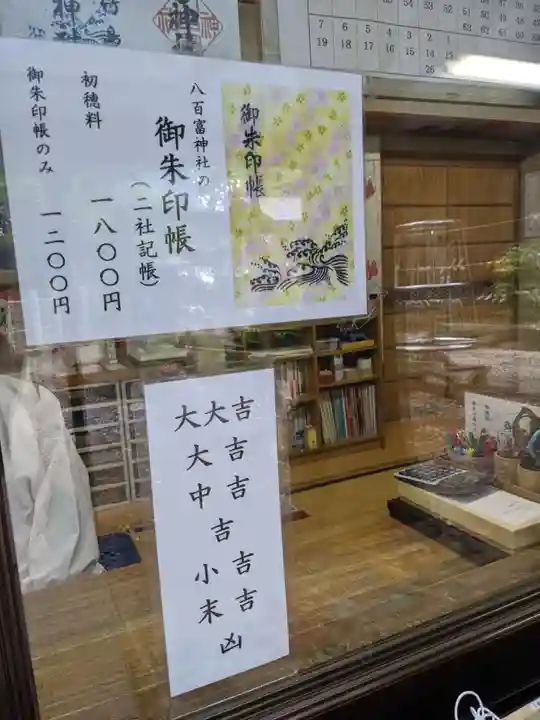 御朱印帳
八百富神社の
御朱印帳
(二社記帳)
初穂料 一八〇〇円
御朱印帳のみ 一二〇〇円
大大吉
大吉
中吉
吉
小吉
末吉
凶